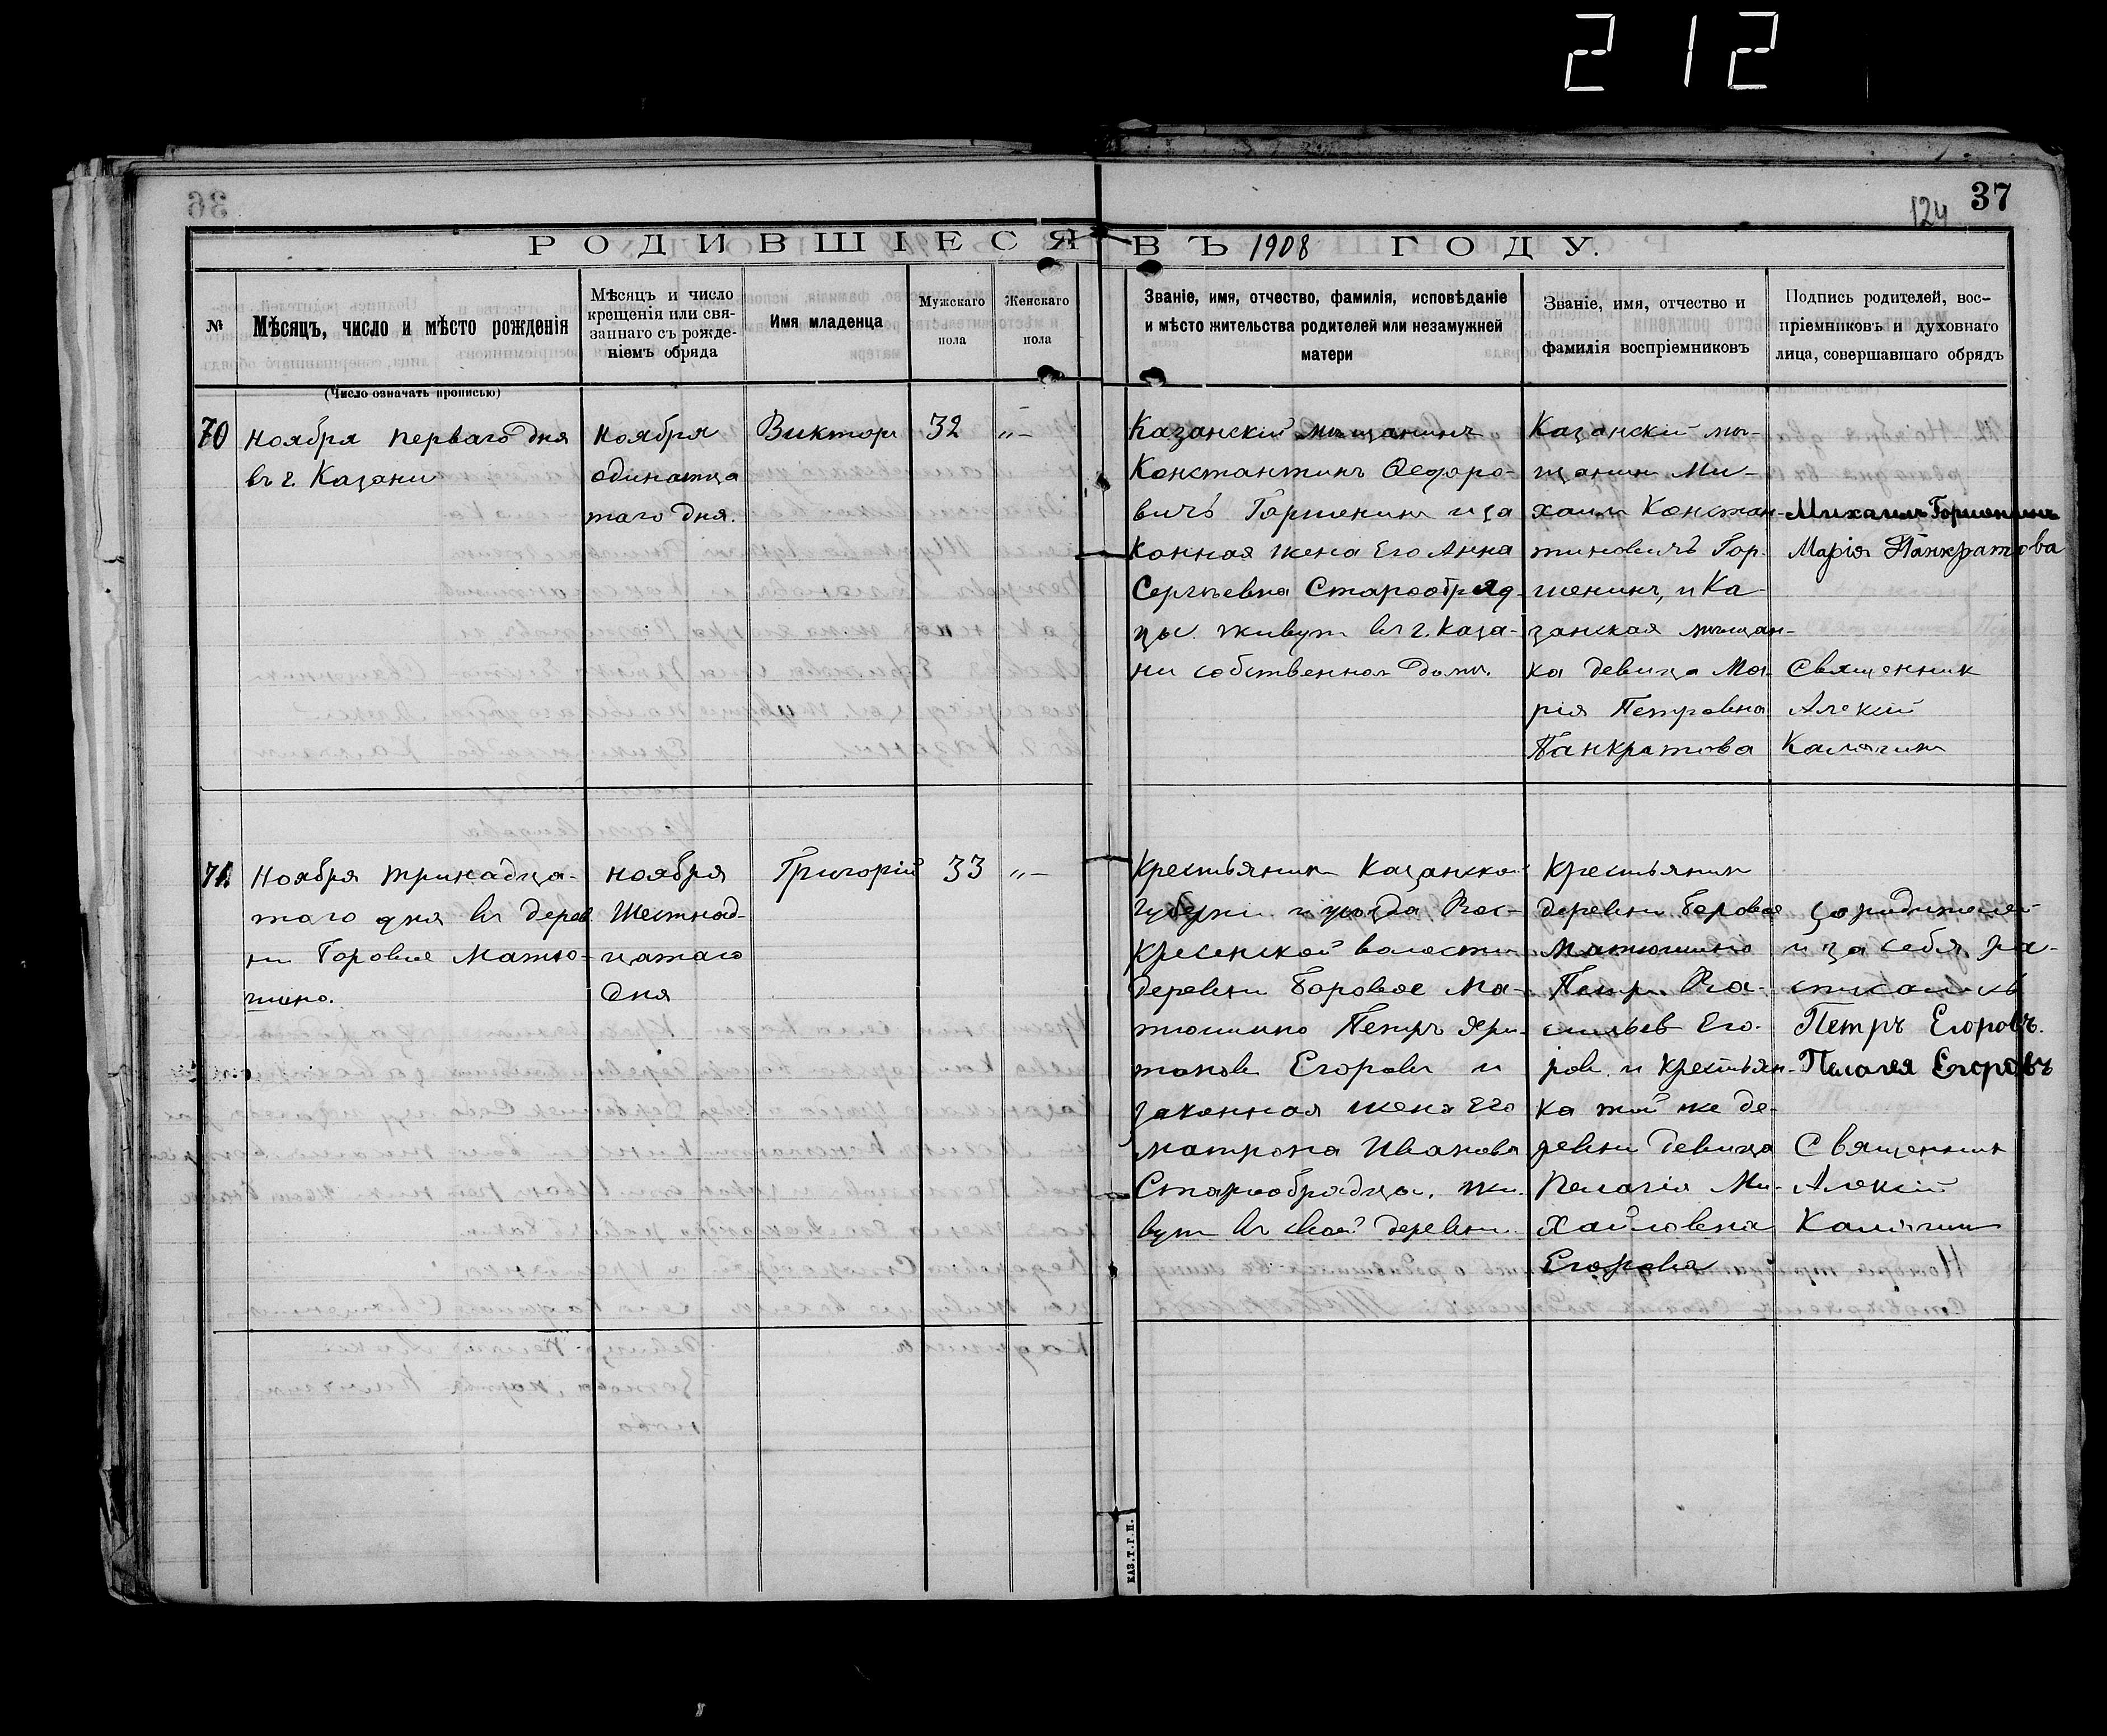 212
37
124
РОДИВШІЕСЯ ВЪ 1908 ГОДУ.
№
Мѣсяцъ, число и мѣсто рожденія
(Число означать прописью)
Мѣсяцъ и число
крещенія или свя-
заннаго съ рожде-
ніемъ обряда
Имя младенца
Мужскаго
пола
Женскаго
пола
Званіе, имя, отчество, фамилія, исповѣданіе
и мѣсто жительства родителей или незамужней
матери
Званіе, имя, отчество и
фамилія воспріемниковъ
Подпись родителей, вос-
пріемниковъ и духовнаго
лица, совершавшаго обрядъ
70
Ноября перваго дня
въ г. Казани
Ноября
одинатца
таго дня.
Викторъ
32
"—
Казанскій мѣщанинъ
Константинъ Ѳедоро-
вичъ Горшенинъ и за
конная жена Его Анна
Сергѣевна Старообряд-
цы. живутъ въ г. Каза-
ни собственной домъ.
Казанскій мѣ-
щанин Ми-
хаилъ Констан-
тиновичъ Гор-
шенинъ, и Ка-
занская мѣщан-
ка девица Ма-
рія Петровна
Панкратова
Михаилъ Горшенинъ
Марія Панкратова
Священник
Алексій
Калягин
71.
Ноября тринадца-
таго дня въ дерев
ни Боровое Матю-
шино.
Ноября
Шестнад-
цатаго
дня
Григорій
33
"—
Крестьянин Казанской
Губерни и уезда Вос-
кресенской волости
деревни Боровое Ма-
тюшино Петръ
Егоровъ и
законная жена Его
Матрона Иванова
Старообрядцы. жи-
вутъ въ своей деревни.
Крестьянин
деревни Боровое
Матюшино
Петръ Ва-
сильев Его-
ров и крестьян-
ка той же де-
ревни девица
Пелагія Ми-
хайловна
Егорова
за родителей
и за себя ра-
списались
Петръ Егоровъ.
Пелагея Егоровъ
Священник
Алексій
Калягин
КАЗ. Т. Г. П.